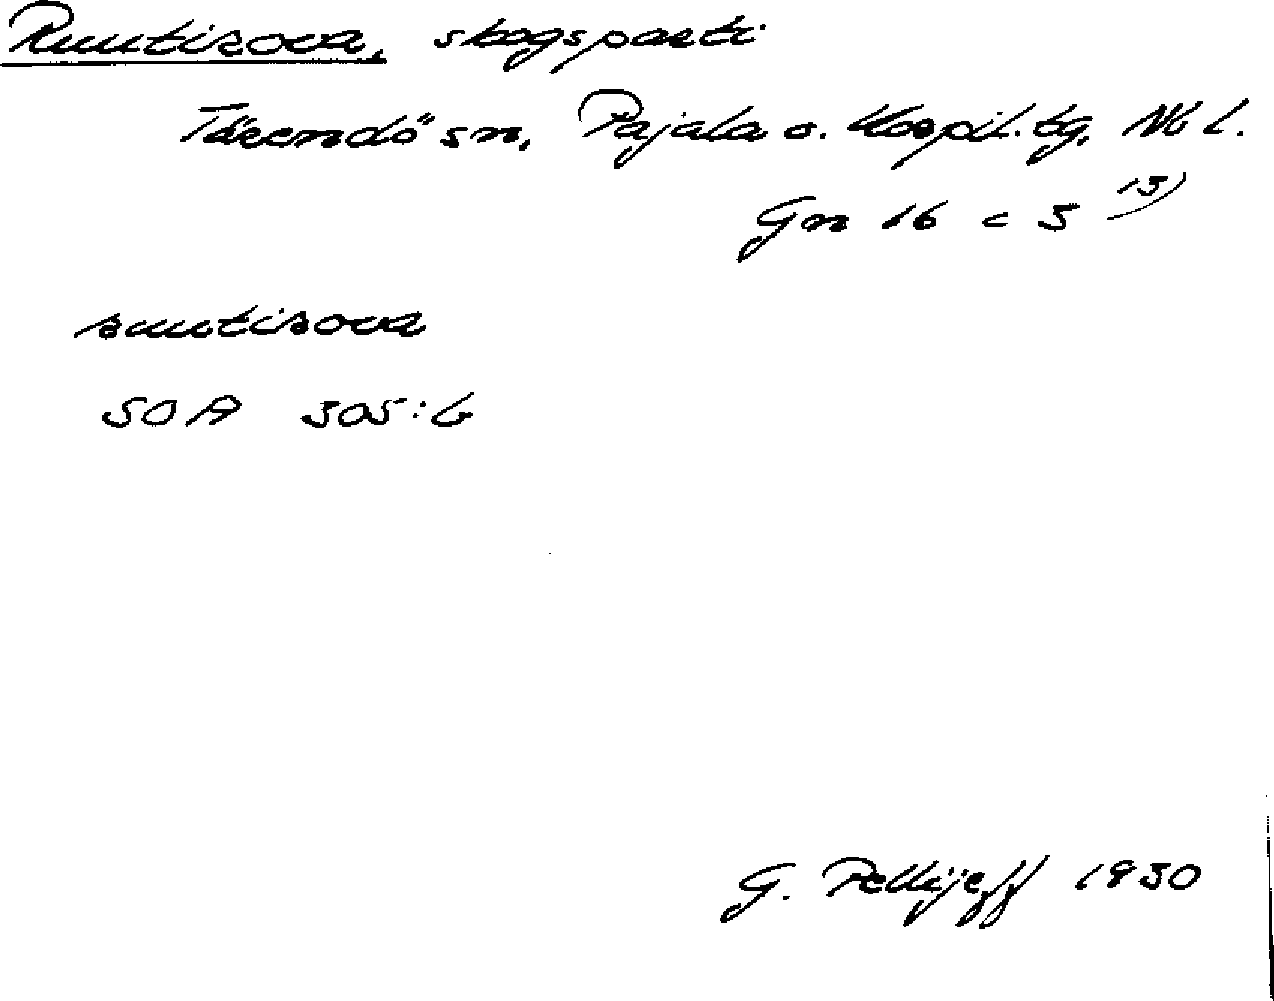 Ruutirova, skogsparti
Tärendö sn, Pajala o. Korpil. tg, Nb l.
Gn 16 c 5 13)
ruutirova
SOA 305:6
G. Pellijeff 1930